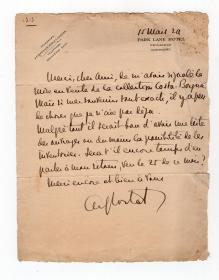 15 Mars 29
PARK LANE HOTEL
PICCADILLY
Merci, cher Ami, de m'avoir signalé la
mise en vente de la collection Costa
Mais si mes souvenirs sont exacts, il y a peu
de choses que je n'aie pas déjà.
Malgré tout il serait bon d'avoir une liste
des ouvrages ou du moins la possibilité de les
inventorier. Sera-t-il encore temps d'en
parler à mon retour, vers le 25 de ce mois?
Merci encore et bien à vous